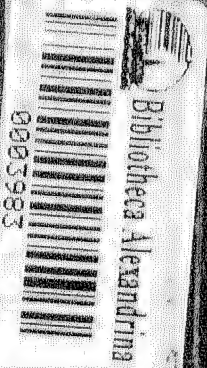 Bibliotheca Alexandrina
0003983